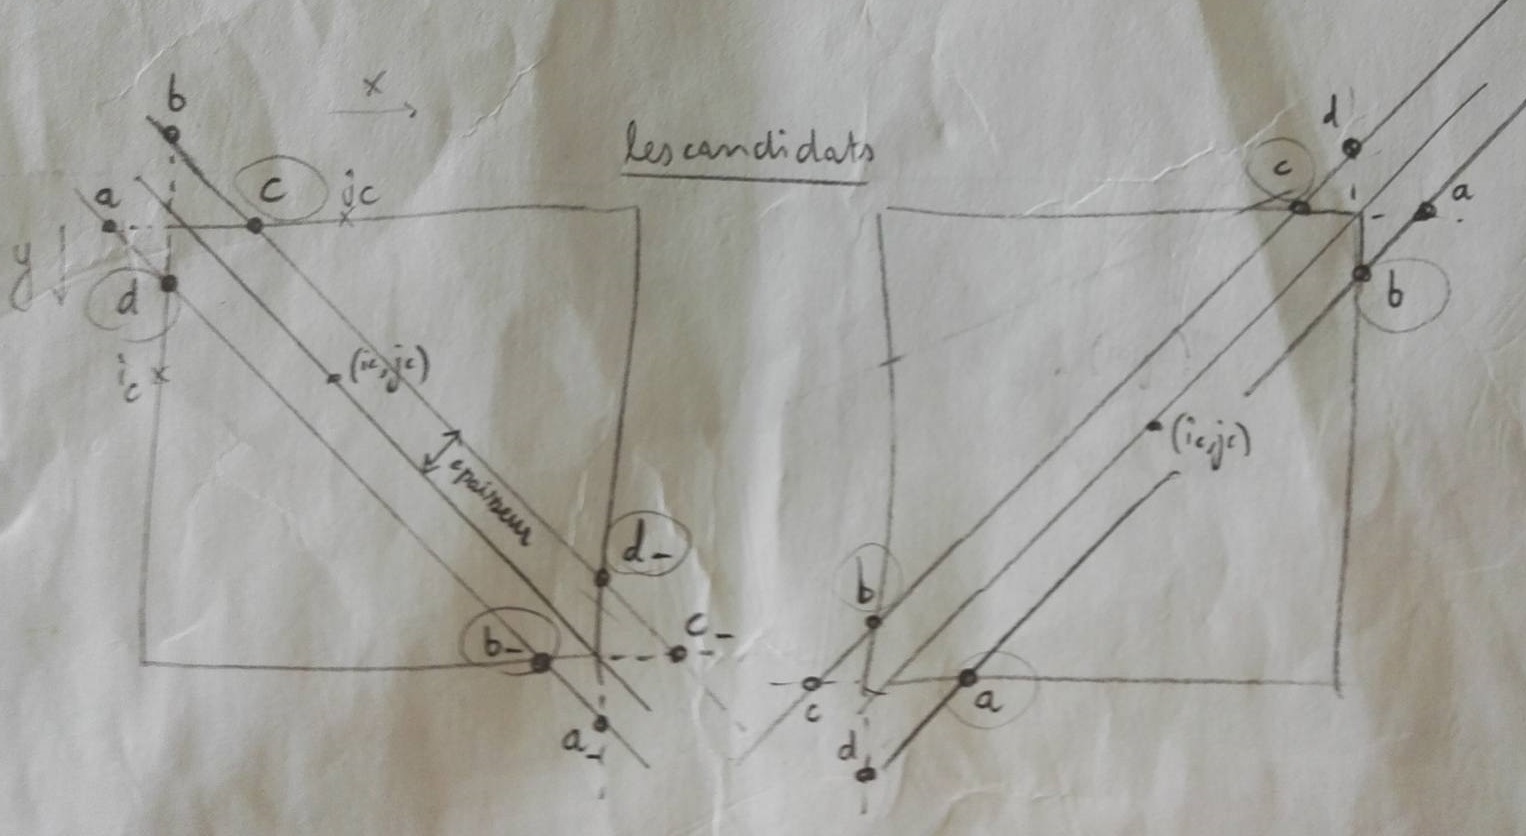 les candidats
x
b
a
c
jc
y
d
ic
(ic, jc)
epaisseur
d-
b-
c-
a-
d
c
a
b
(ic, jc)
b
c
a
d